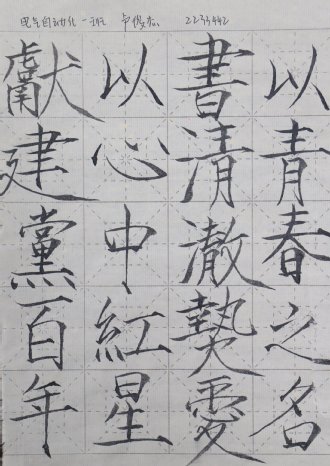 电气自动化一班 2233442
以青春之名
書清澈摯愛
以心中紅星
獻建黨百年